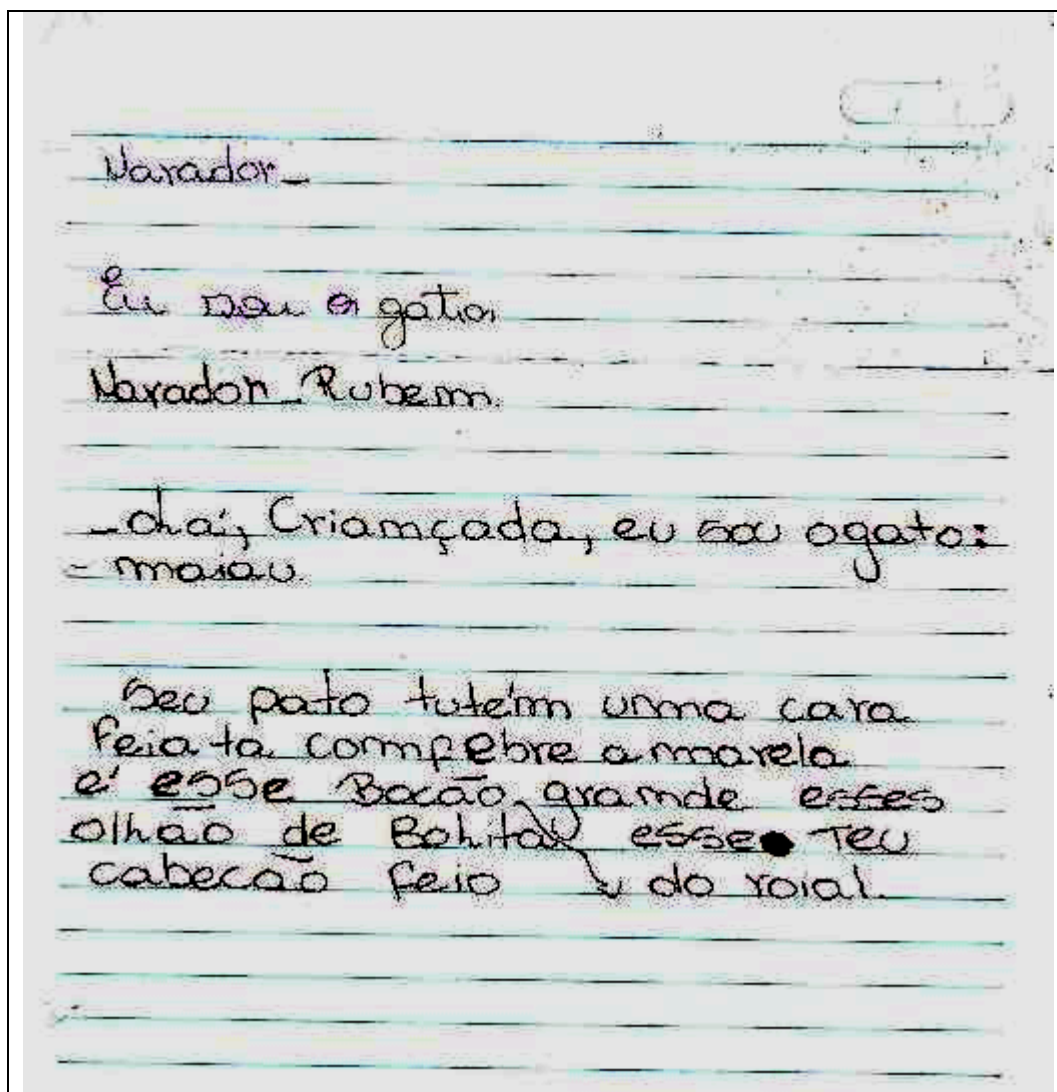 Narador_
Eu sou o gato
Narador_Rubem.
_ola, Criamçada, eu sou ogato:
- maiau.
Seu pato tutém uma cara
feia ta comfebre amarela
é esse Bocão gramde esses
olhão de esse Teu
cabecão feio do roial.